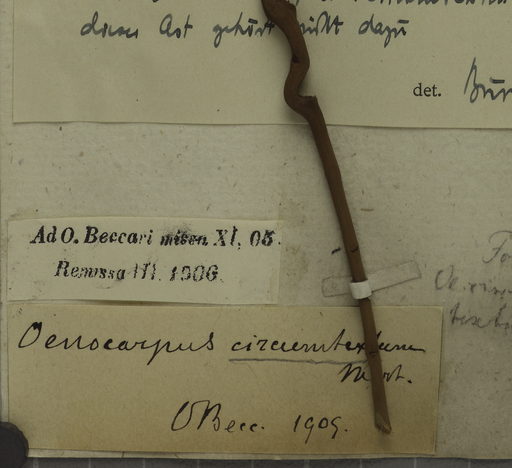 dieser Ast gehört nicht dazu
det. Bur
Ad O. Beccari misea XI, 05.
Remissa III. 1906.
Oenocarpus circumtextum
Mart.
OBecc. 1905.